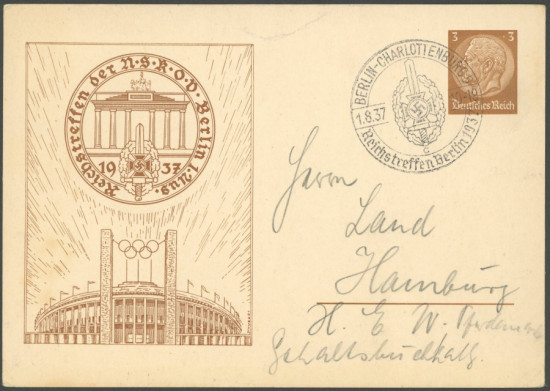 Reichstreffen der N·S·K·O·V· Berlin 1. Aug.
1937
BERLIN-CHARLOTTENBURG
1.8.37
Reichstreffen Berlin 1937
c
3 3
Deutsches Reich
Herrn
Land
Hamburg
H. E. W.
Gehaltsbuchhalt.